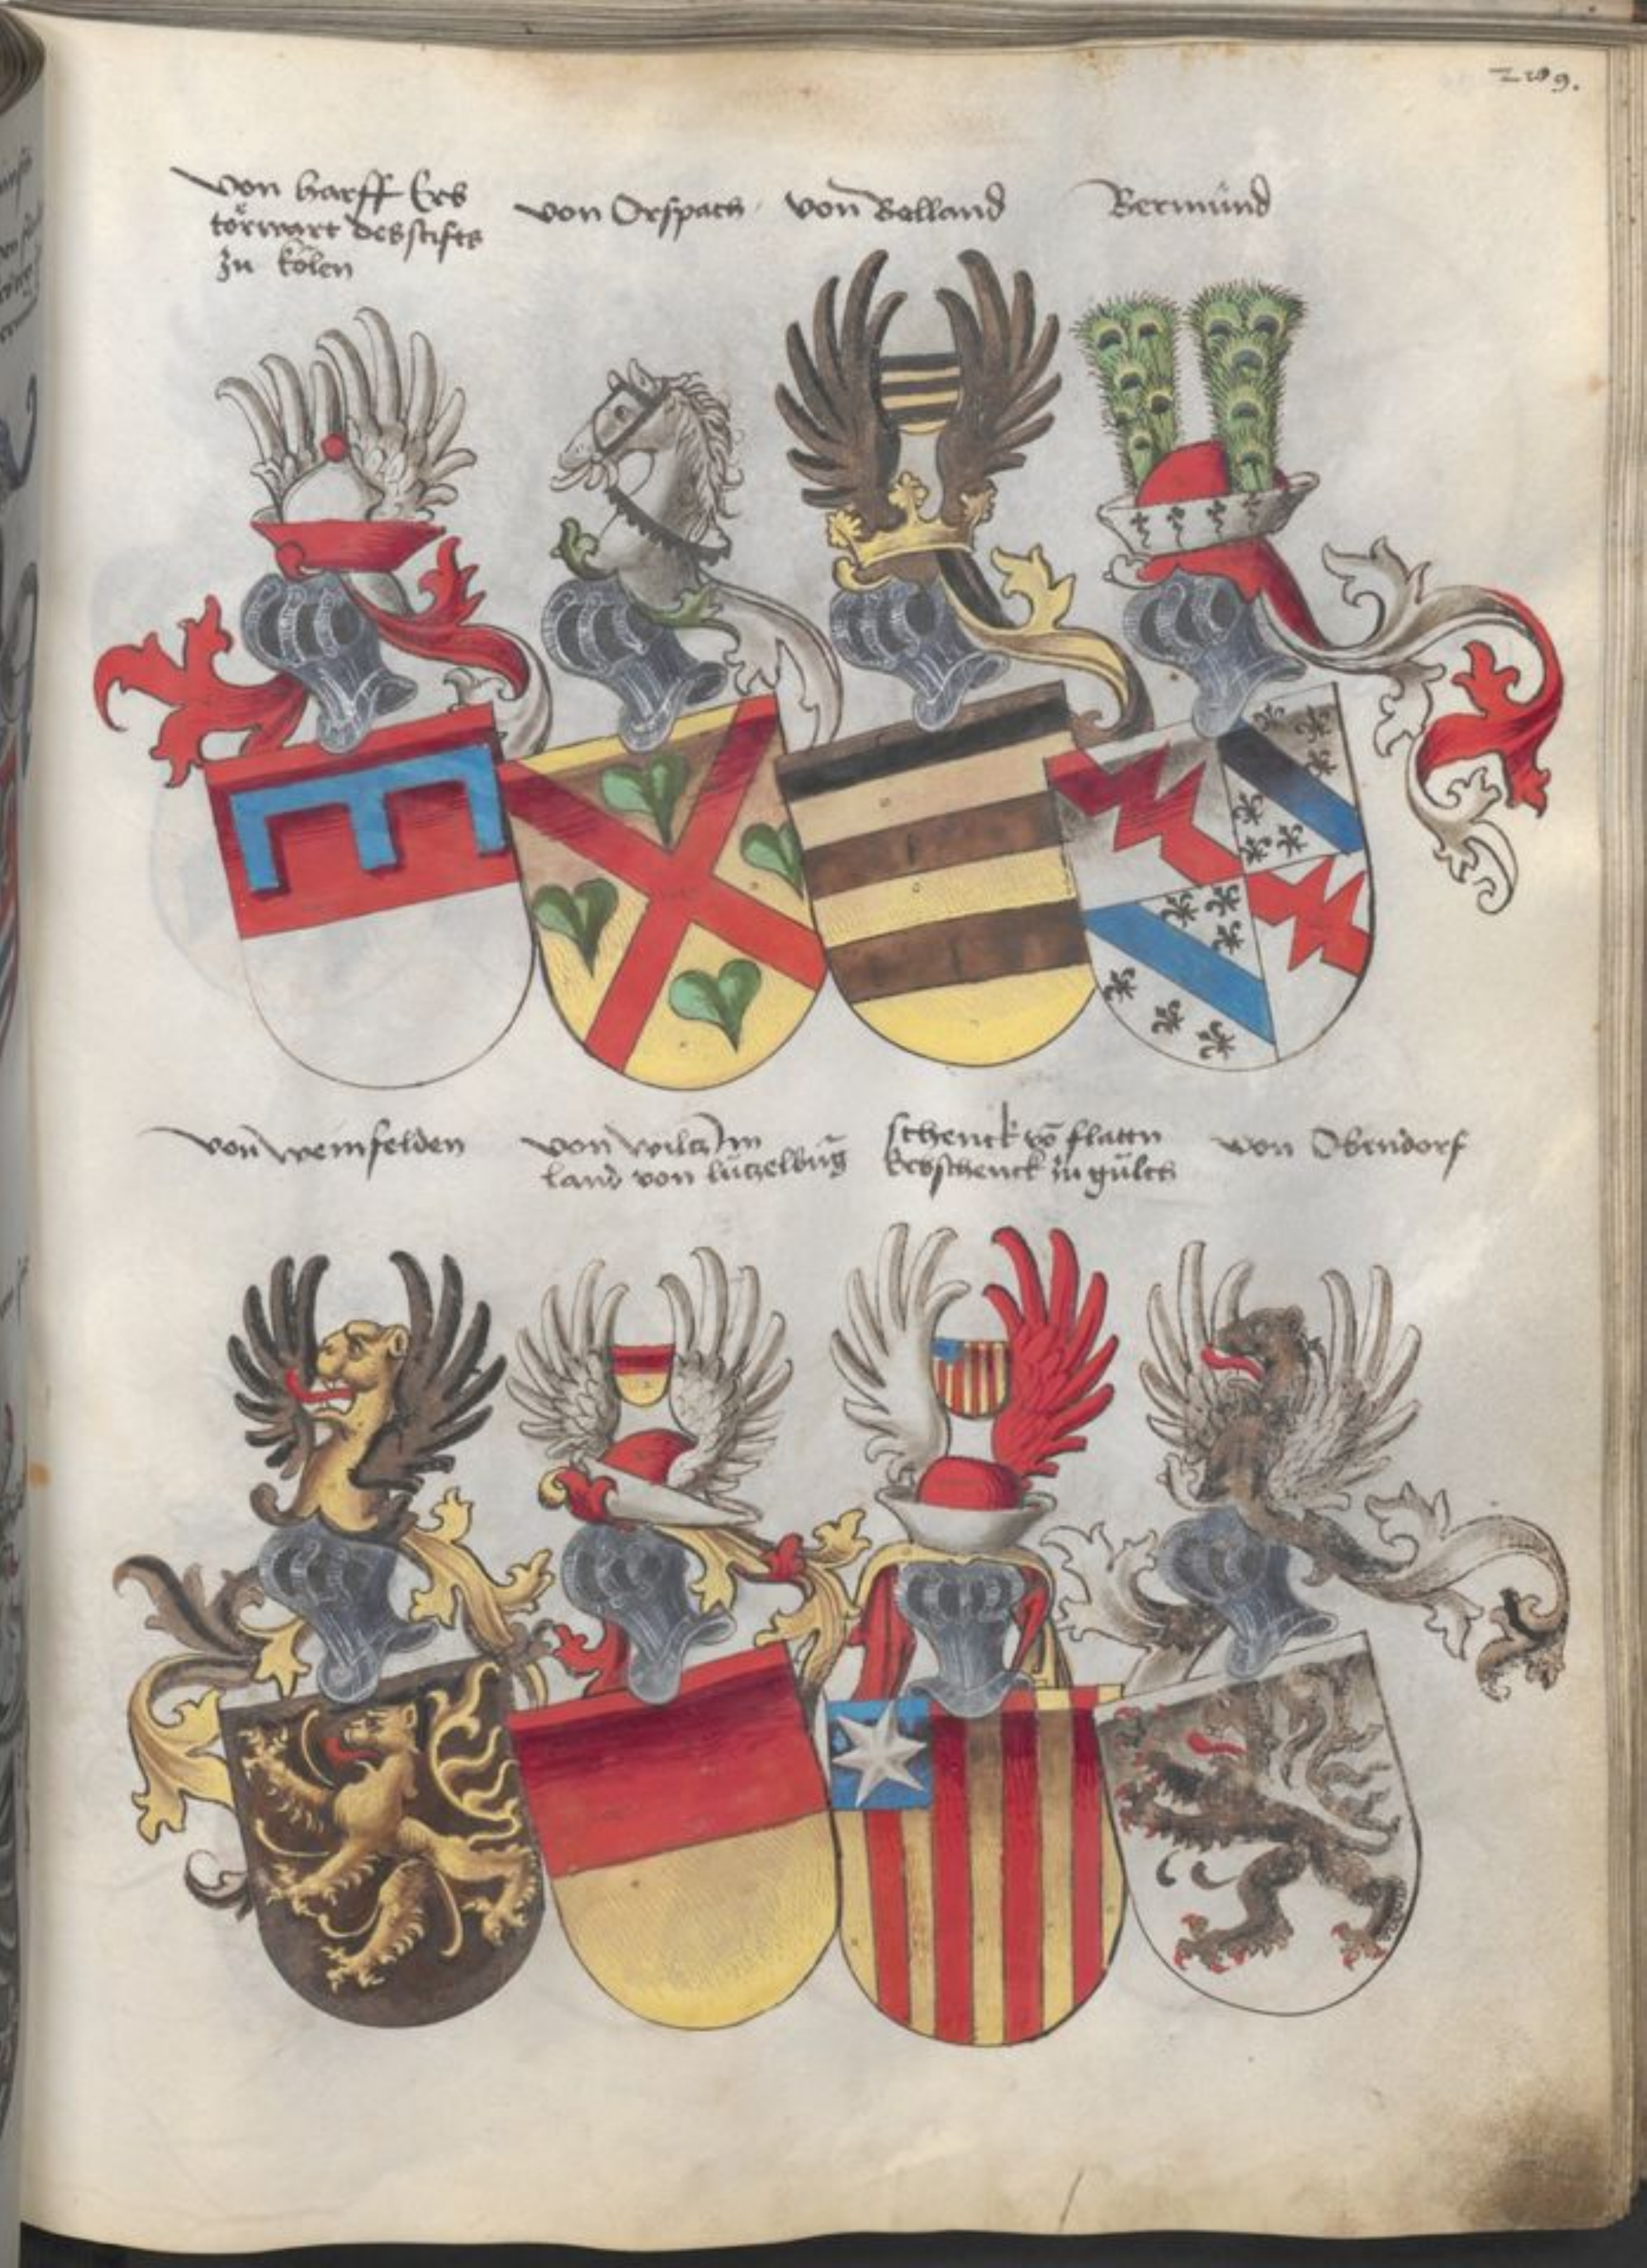 von harff Erb
törwart des stifts
zu Kölen
von Orspach
von Bolland
Bermünd
von weinfelden
von wiltz Im
land von lützelbūg
schenck vō flattn
Erbschenck zu gülch
von Obendorf